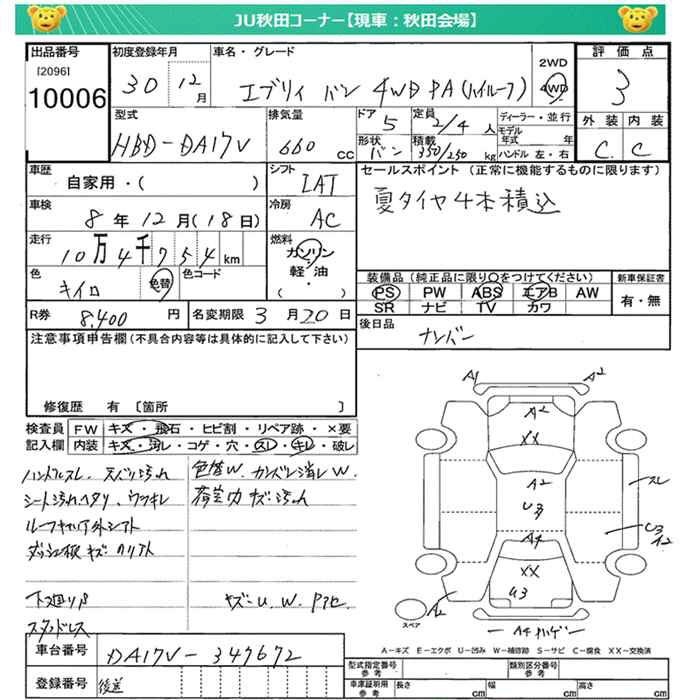 JU秋田コーナー【現車：秋田会場】
出品番号
[2096]
10006
初度登録年月
30 12月
車名・グレード
エブリィ バン 4WD PA(ハイルーフ)
2WD
4WD
評価点
3
型式
HBD-DA17V
排気量
660 cc
ドア
5
定員
2/4人
形状
バン
積載
350/250 kg
ディーラー・並行
モデル年式 年
ハンドル 左・右
外装 内装
C C
車歴
自家用・( )
シフト
IAT
車検
8年12月(18日)
冷房
AC
走行
10万4千754km
燃料
ガソリン
軽油
( ・ )
色
キイロ
色替
色コード
R券
8,400円
名変期限 3月20日
セールスポイント（正常に機能するものに限ります）
夏タイヤ4本積込
装備品（純正品に限り○をつけてください）
PS PW ABS エアB AW
SR ナビ TV カワ
新車保証書
有・無
後日品
ナンバー
注意事項申告欄（不具合内容等は具体的に記入して下さい）
修復歴 有 〔箇所 〕
検査員記入欄
FW キズ・飛石・ヒビ割・リペア跡・×要
内装 キズ・汚レ・コゲ・穴・スレ・キレ・破レ
ハンドルスレ、天バリ汚れ
シート汚れヘタリ、ウラキレ
色替W、カンバン消しW
荷室内キズ汚れ
下廻りP
キズ・U、W、Pアセ
スタッドレス
A1 A2
A2
XX
A2
U3
A4
XX
U3
A2
スレ
U3
A2
A4
スペア
A－キズ E－エクボ U－凹み W－補修跡 S－サビ C－腐食 XX－交換済
車台番号
DA17V-347672
登録番号
後送
型式指定番号 参考
類別区分番号 参考
車庫証明用 参考
長さ cm
幅 cm
高さ cm